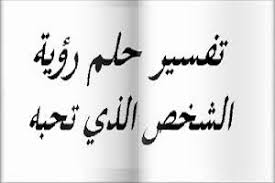 تفسير حلم رؤية
الشخص الذي تحبه